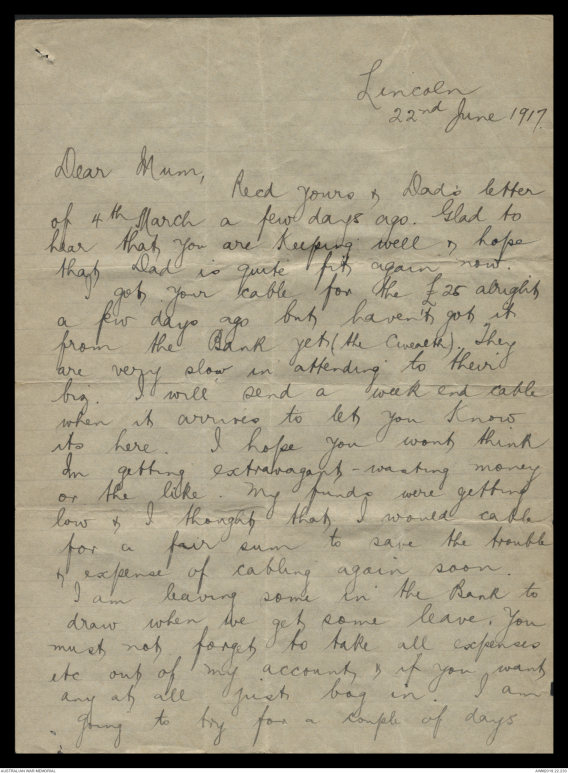 Lincoln
22nd June 1917.
Dear Mum,
Recd yours & Dad's letter
of 4th March a few days ago. Glad to
hear that you are keeping well & hope
that Dad is quite fit again now.
I got your cable for the £25 alright
a few days ago but haven't got it
from the Bank yet (the Cwealth). They
are very slow in attending to their
biz. I will send a week end cable
when it arrives to let you know
its here. I hope you wont think
Im getting extravagant - wasting money
or the like. My funds were getting
low & I thought that I would cable
for a fair sum to save the trouble
& expense of cabling again soon.
I am leaving some in the Bank to
draw when we get some leave. You
must not forget to take all expenses
etc out of my account & if you want
any at all just bog in. I am
going to try for a couple of days
AUSTRALIAN WAR MEMORIAL